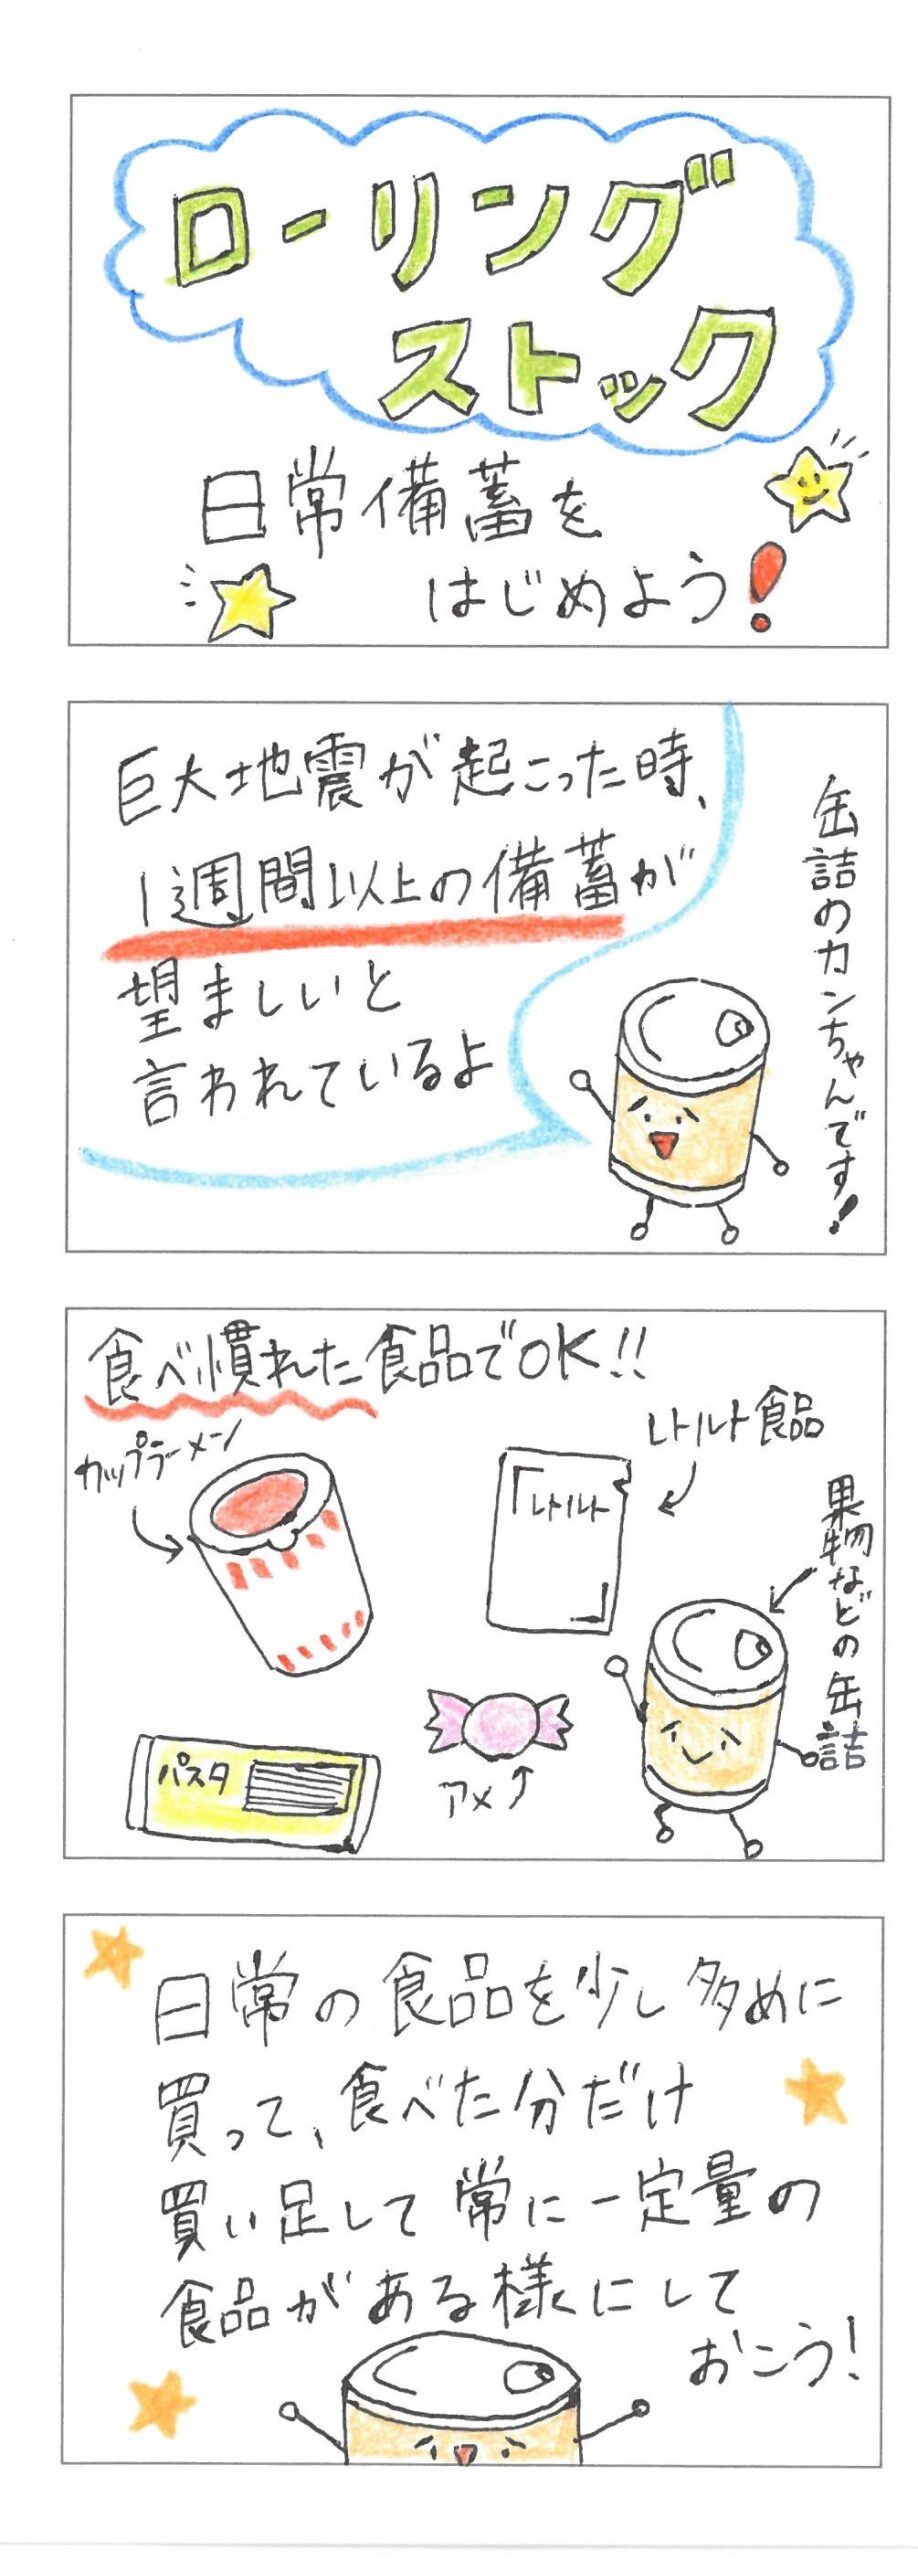 ローリング
ストック
日常備蓄を
はじめよう!
巨大地震が起こった時、
1週間以上の備蓄が
望ましいと
言われているよ
缶詰のカンちゃんです!
食べ慣れた食品でOK!!
カップラーメン
レトルト食品
「レトルト」
果物などの缶詰
パスタ
アメ
日常の食品を少し多めに
買って、食べた分だけ
買い足して常に一定量の
食品がある様にして
おこう!